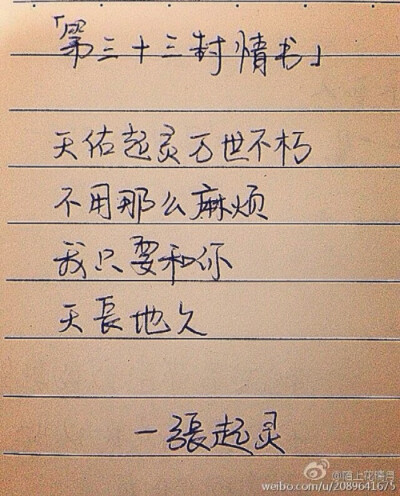 「第三十三封情书」
天佑起灵万世不朽
不用那么麻烦
我只要和你
天長地久
一張起灵
@陌上花情月
weibo.com/u/2089641675